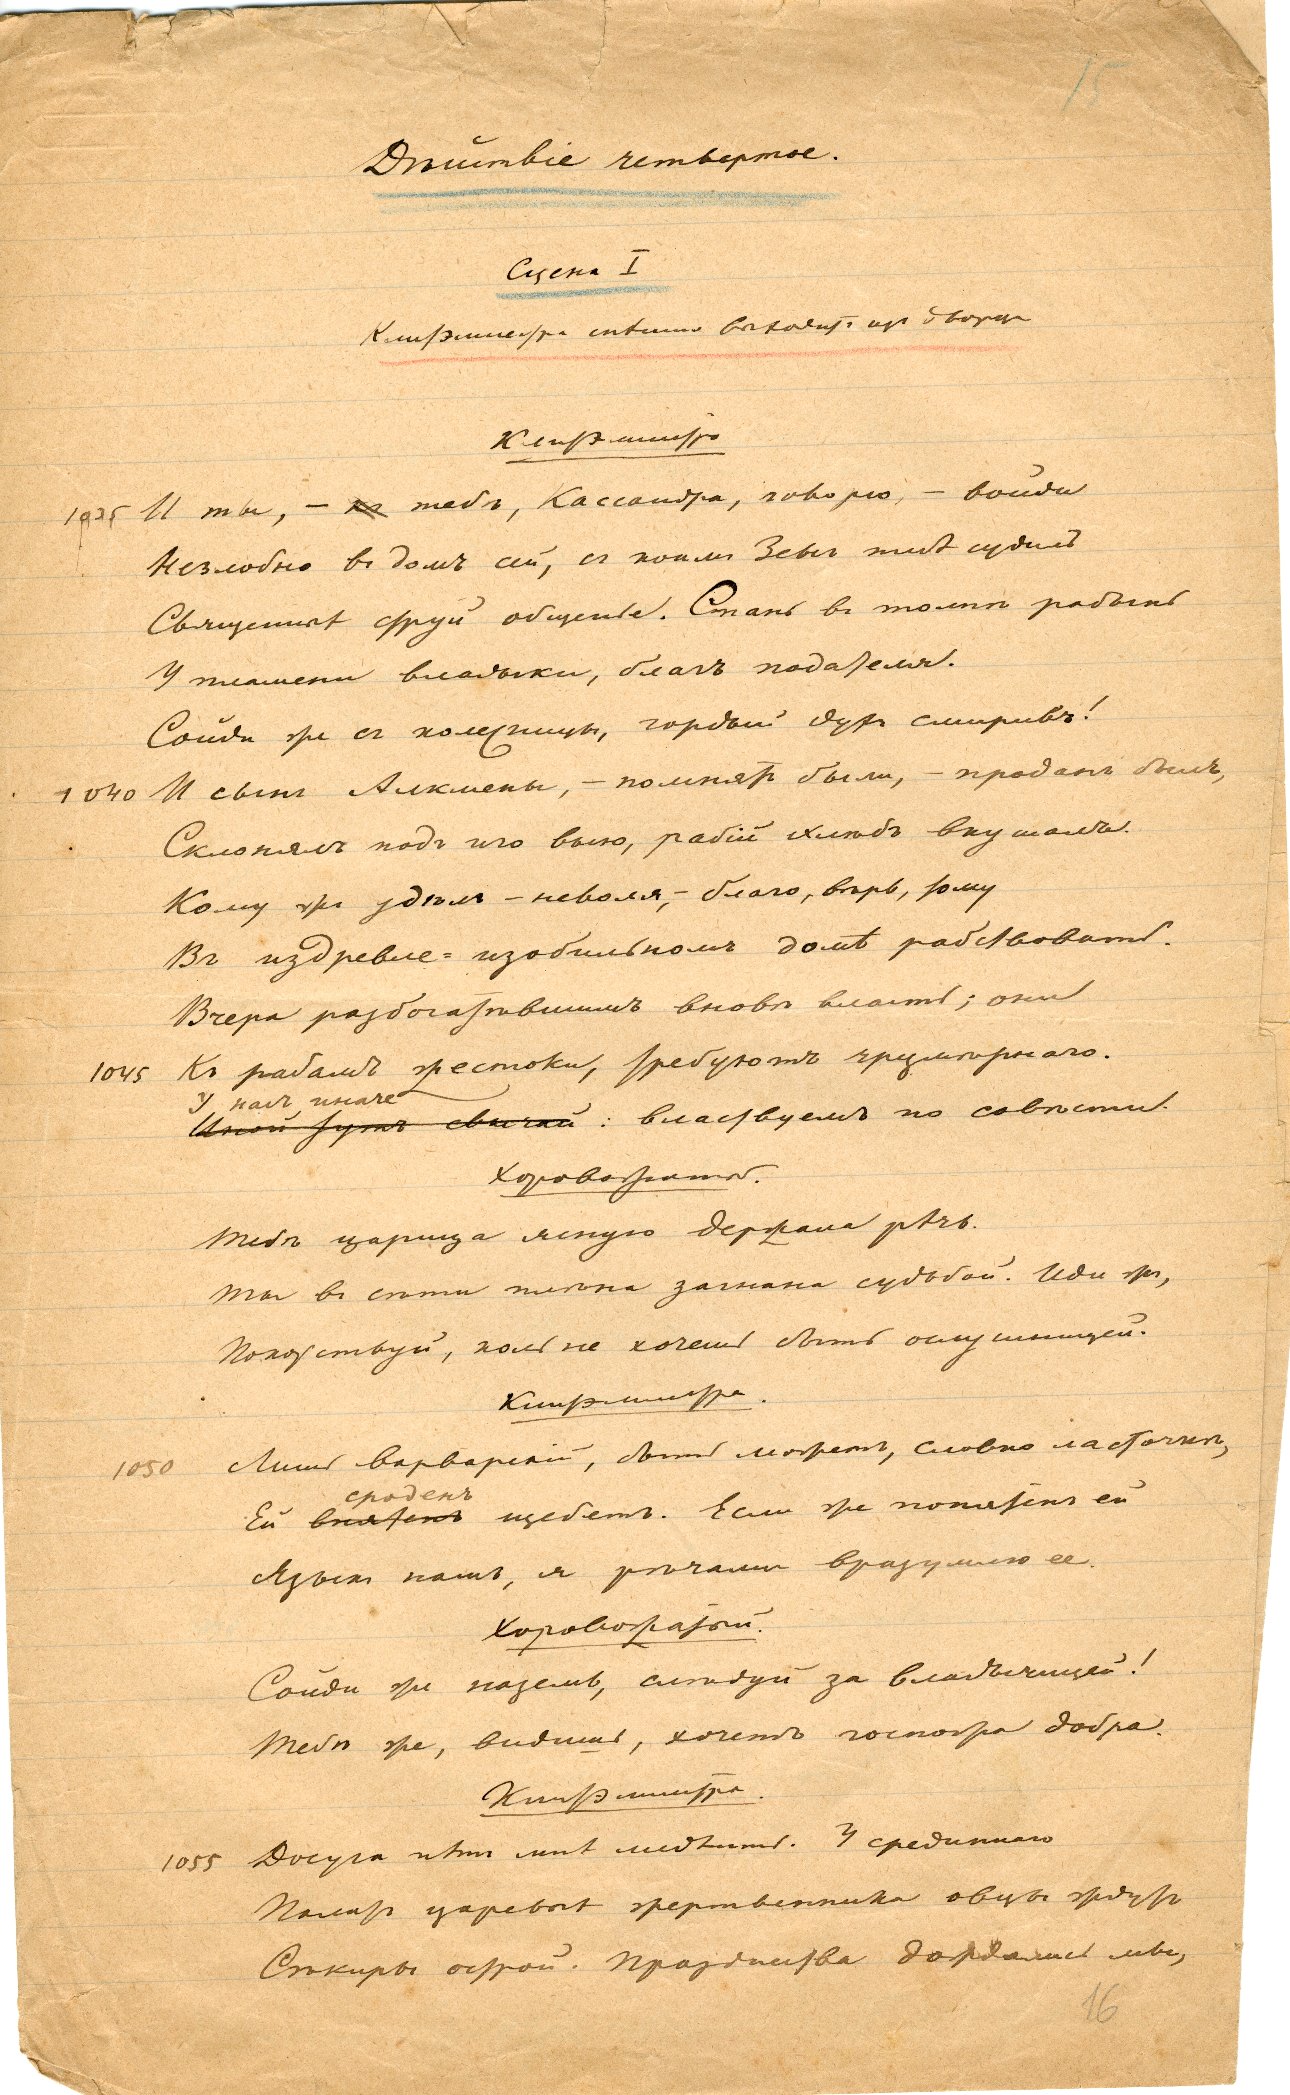 15
Дѣйствіе четвертое.
Сцена I
Клитэмнестра спѣшно выходитъ изъ дворца
Клитэмнестра
1035 И ты, – къ тебѣ, Кассандра, говорю, – войди
Незлобно въ домъ сей, съ коимъ Зевсъ тебѣ судилъ
Священныхъ струй общенье. Стань въ толпѣ рабынь
У пламени владыки, благъ подателя.
Сойди же съ колесницы, гордый духъ смиривъ!
1040 И сынъ Алкмены, – помнятъ были, – проданъ былъ,
Склонялъ подъ иго выю, рабій хлѣбъ вкушалъ.
Кому же удѣлъ – неволя, – благо, вѣрь, тому
Въ издревле-изобильномъ домѣ рабствовать.
Вчера разбогатѣвшимъ вновѣ власть; они
1045 Къ рабамъ жестоки, требуютъ чрезмѣрнаго.
У насъ иначе
Иной тутъ свычай : властвуемъ по совѣсти.
Хороводъ.
Тебѣ царица ясную держала рѣчь.
Ты въ сѣти плѣна загнана судьбой. Иди же,
Покорствуй, коль не хочешь быть ослушницей.
Клитэмнестра.
1050 Лишь варварскій, быть можетъ, словно ласточкѣ,
сроденъ
Ей внятенъ щебетъ. Если же понятенъ ей
Языкъ нашъ, я рѣчами вразумлю ее.
Хороводъ.
Сойди же наземь, слѣдуй за владычицей!
Тебѣ же, видишь, хочетъ госпожа добра.
Клитэмнестра.
1055 Досуга нѣтъ мнѣ медлить. У срединнаго
Палатъ царевыхъ жертвенника овцы ждутъ
Сѣкиры острой. Празднества дождались мы,
16